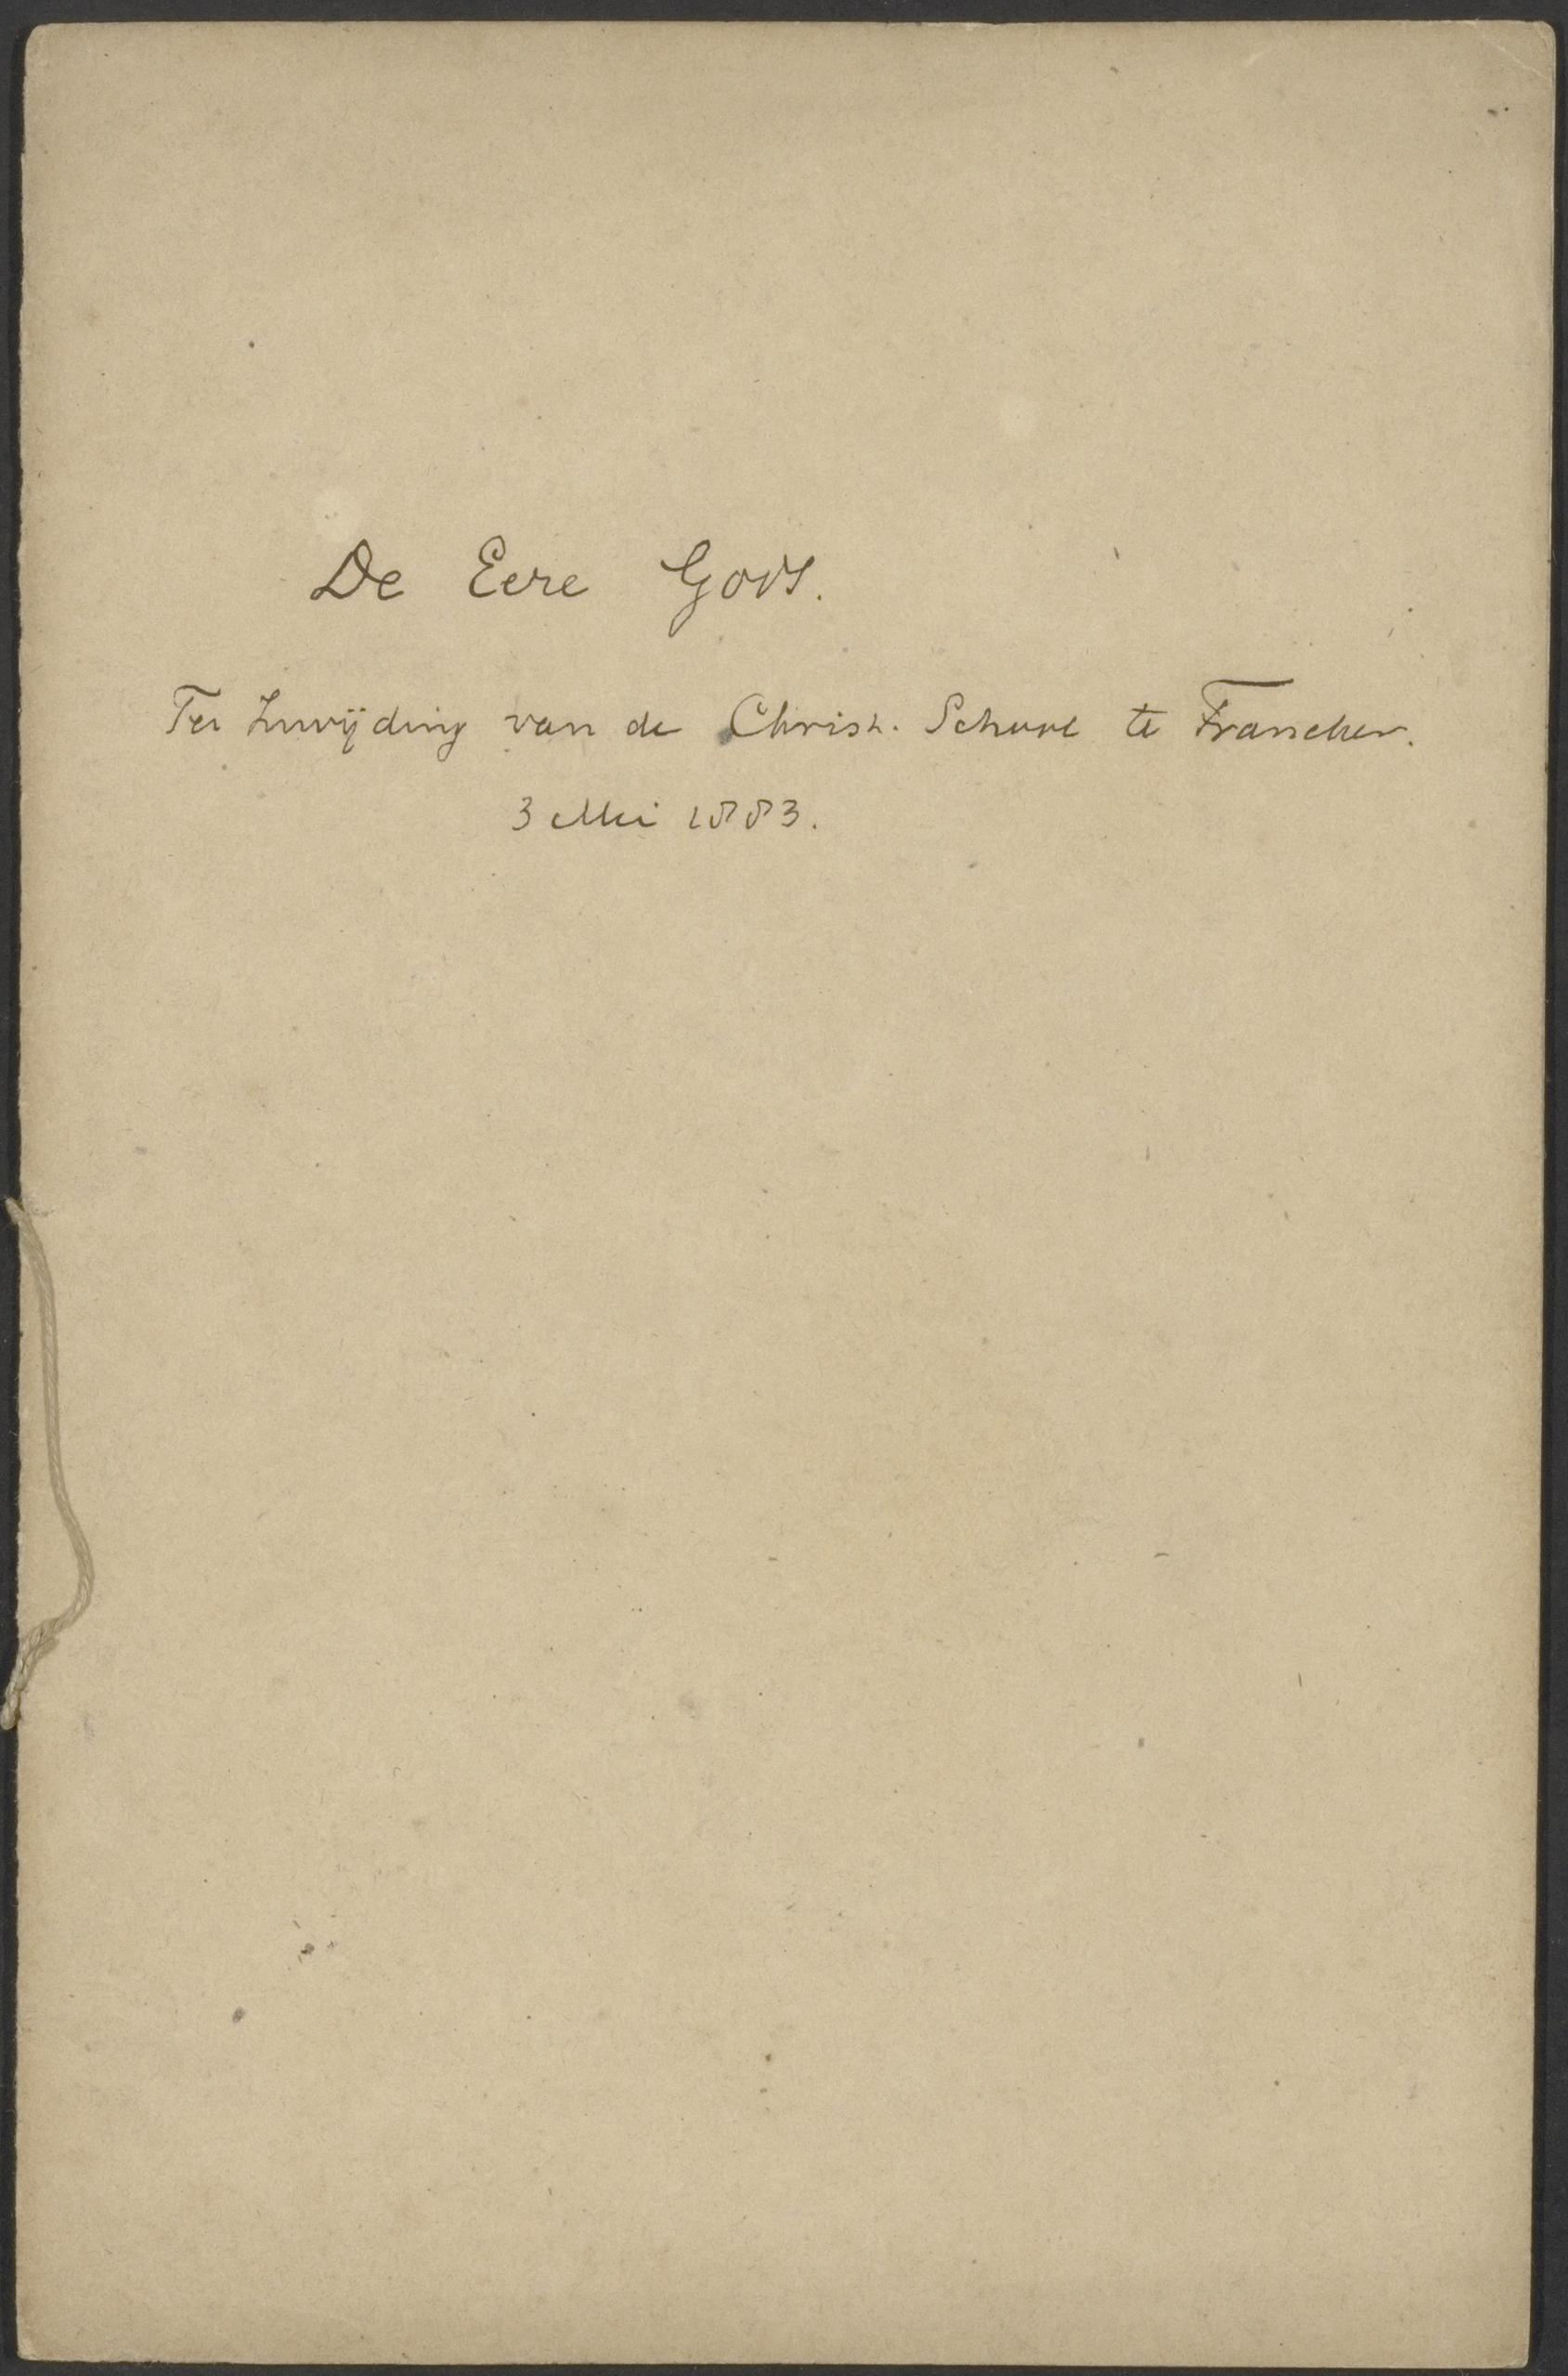 De Eere Gods.
Ter Inwijding van de Christ. School te Franeker.
3 Mei 1883.